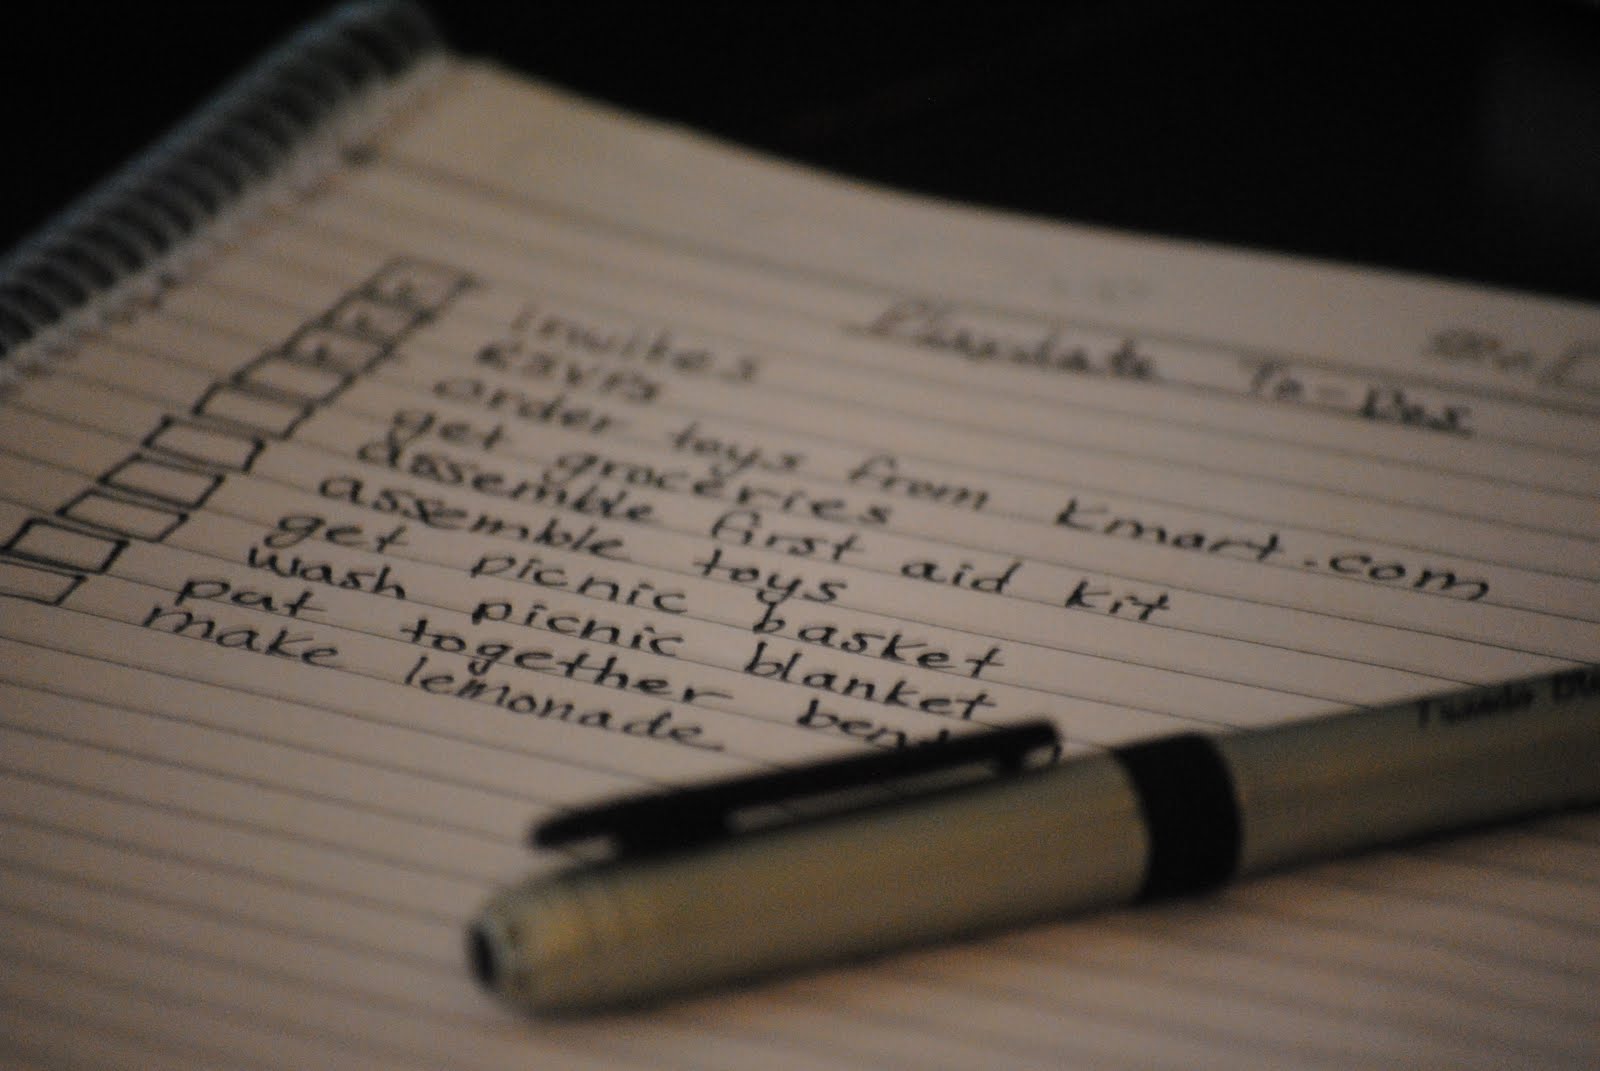 Playdate To-Dos
invites
RSVPs
order toys from kmart.com
get groceries
assemble first aid kit
assemble toys
get picnic basket
wash picnic blanket
put together
make lemonade